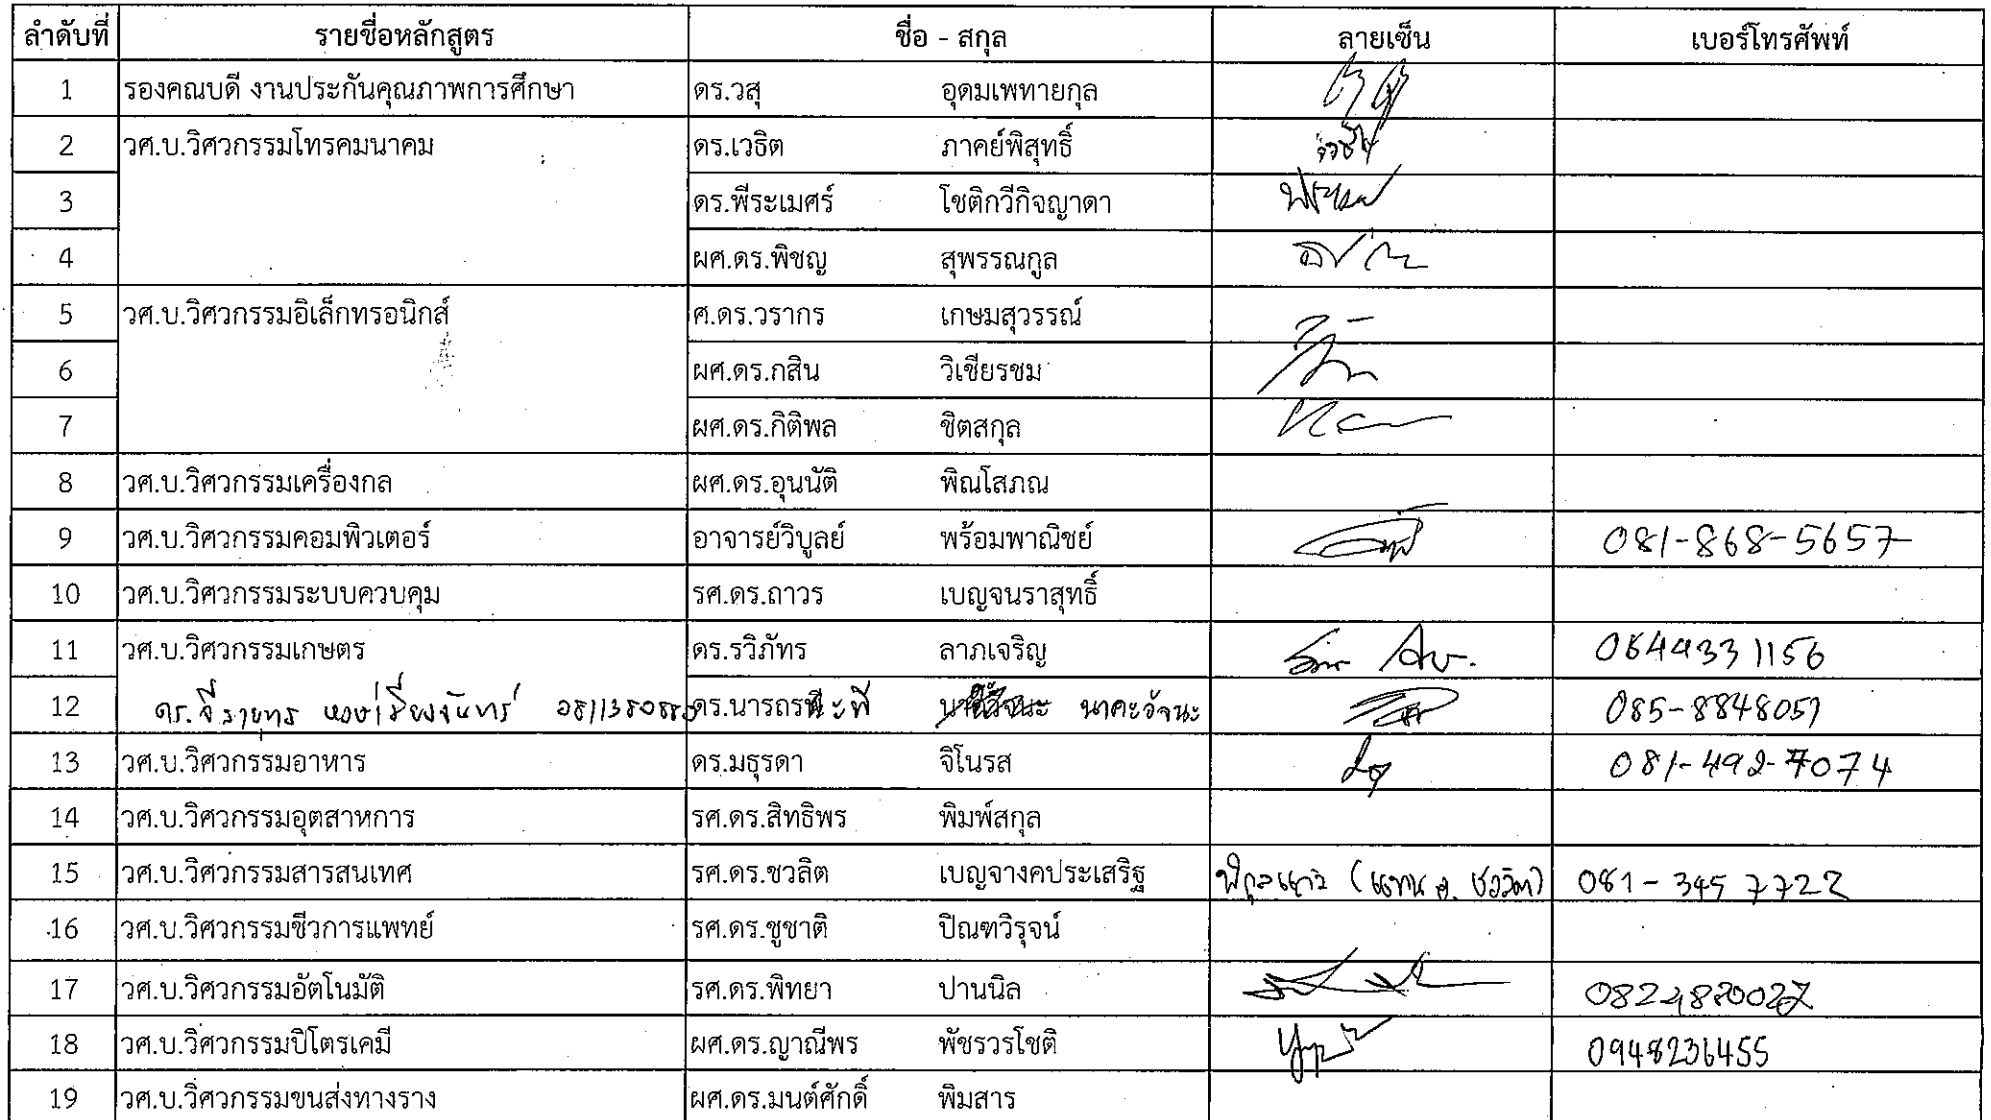 ลำดับที่ รายชื่อหลักสูตร ชื่อ - สกุล ลายเซ็น เบอร์โทรศัพท์
1 รองคณบดี งานประกันคุณภาพการศึกษา ดร.วสุ อุดมเพทายกุล
2 วศ.บ.วิศวกรรมโทรคมนาคม ดร.เวธิต ภาคย์พิสุทธิ์
3 ดร.พีระเมศร์ โชติกวีกิจญาดา
4 ผศ.ดร.พิชญ สุพรรณกูล
5 วศ.บ.วิศวกรรมอิเล็กทรอนิกส์ ศ.ดร.วรากร เกษมสุวรรณ์
6 ผศ.ดร.กสิน วิเชียรชม
7 ผศ.ดร.กิติพล ชิตสกุล
8 วศ.บ.วิศวกรรมเครื่องกล ผศ.ดร.อุนนัติ พิณโสภณ
9 วศ.บ.วิศวกรรมคอมพิวเตอร์ อาจารย์วิบูลย์ พร้อมพาณิชย์ 081-868-5657
10 วศ.บ.วิศวกรรมระบบควบคุม รศ.ดร.ถาวร เบญจนราสุทธิ์
11 วศ.บ.วิศวกรรมเกษตร ดร.รวิภัทร ลาภเจริญ
12 ดร.นารถระพี นาคะวัจนะ 085-8848051
13 วศ.บ.วิศวกรรมอาหาร ดร.มธุรดา จิโนรส 081-492-7074
14 วศ.บ.วิศวกรรมอุตสาหการ รศ.ดร.สิทธิพร พิมพ์สกุล
15 วศ.บ.วิศวกรรมสารสนเทศ รศ.ดร.ชวลิต เบญจางคประเสริฐ (แทน อ. ชวลิต) 081-345 7722
16 วศ.บ.วิศวกรรมชีวการแพทย์ รศ.ดร.ชูชาติ ปิณฑวิรุจน์
17 วศ.บ.วิศวกรรมอัตโนมัติ รศ.ดร.พิทยา ปานนิล
18 วศ.บ.วิศวกรรมปิโตรเคมี ผศ.ดร.ญาณีพร พัชรวรโชติ 0948236455
19 วศ.บ.วิศวกรรมขนส่งทางราง ผศ.ดร.มนต์ศักดิ์ พิมสาร